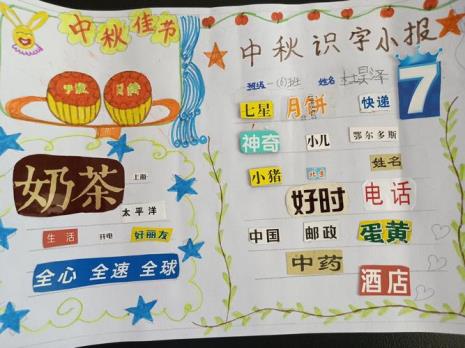 中秋佳节
奶茶
上海
太平洋
生活
好丽友
全心 全速 全球
中秋识字小报
班级一(6)班 姓名
七星 月饼 快递
7
神奇 小儿 鄂尔多斯
小猪 姓名
好时 电话
中国 邮政 蛋黄
中药 酒店